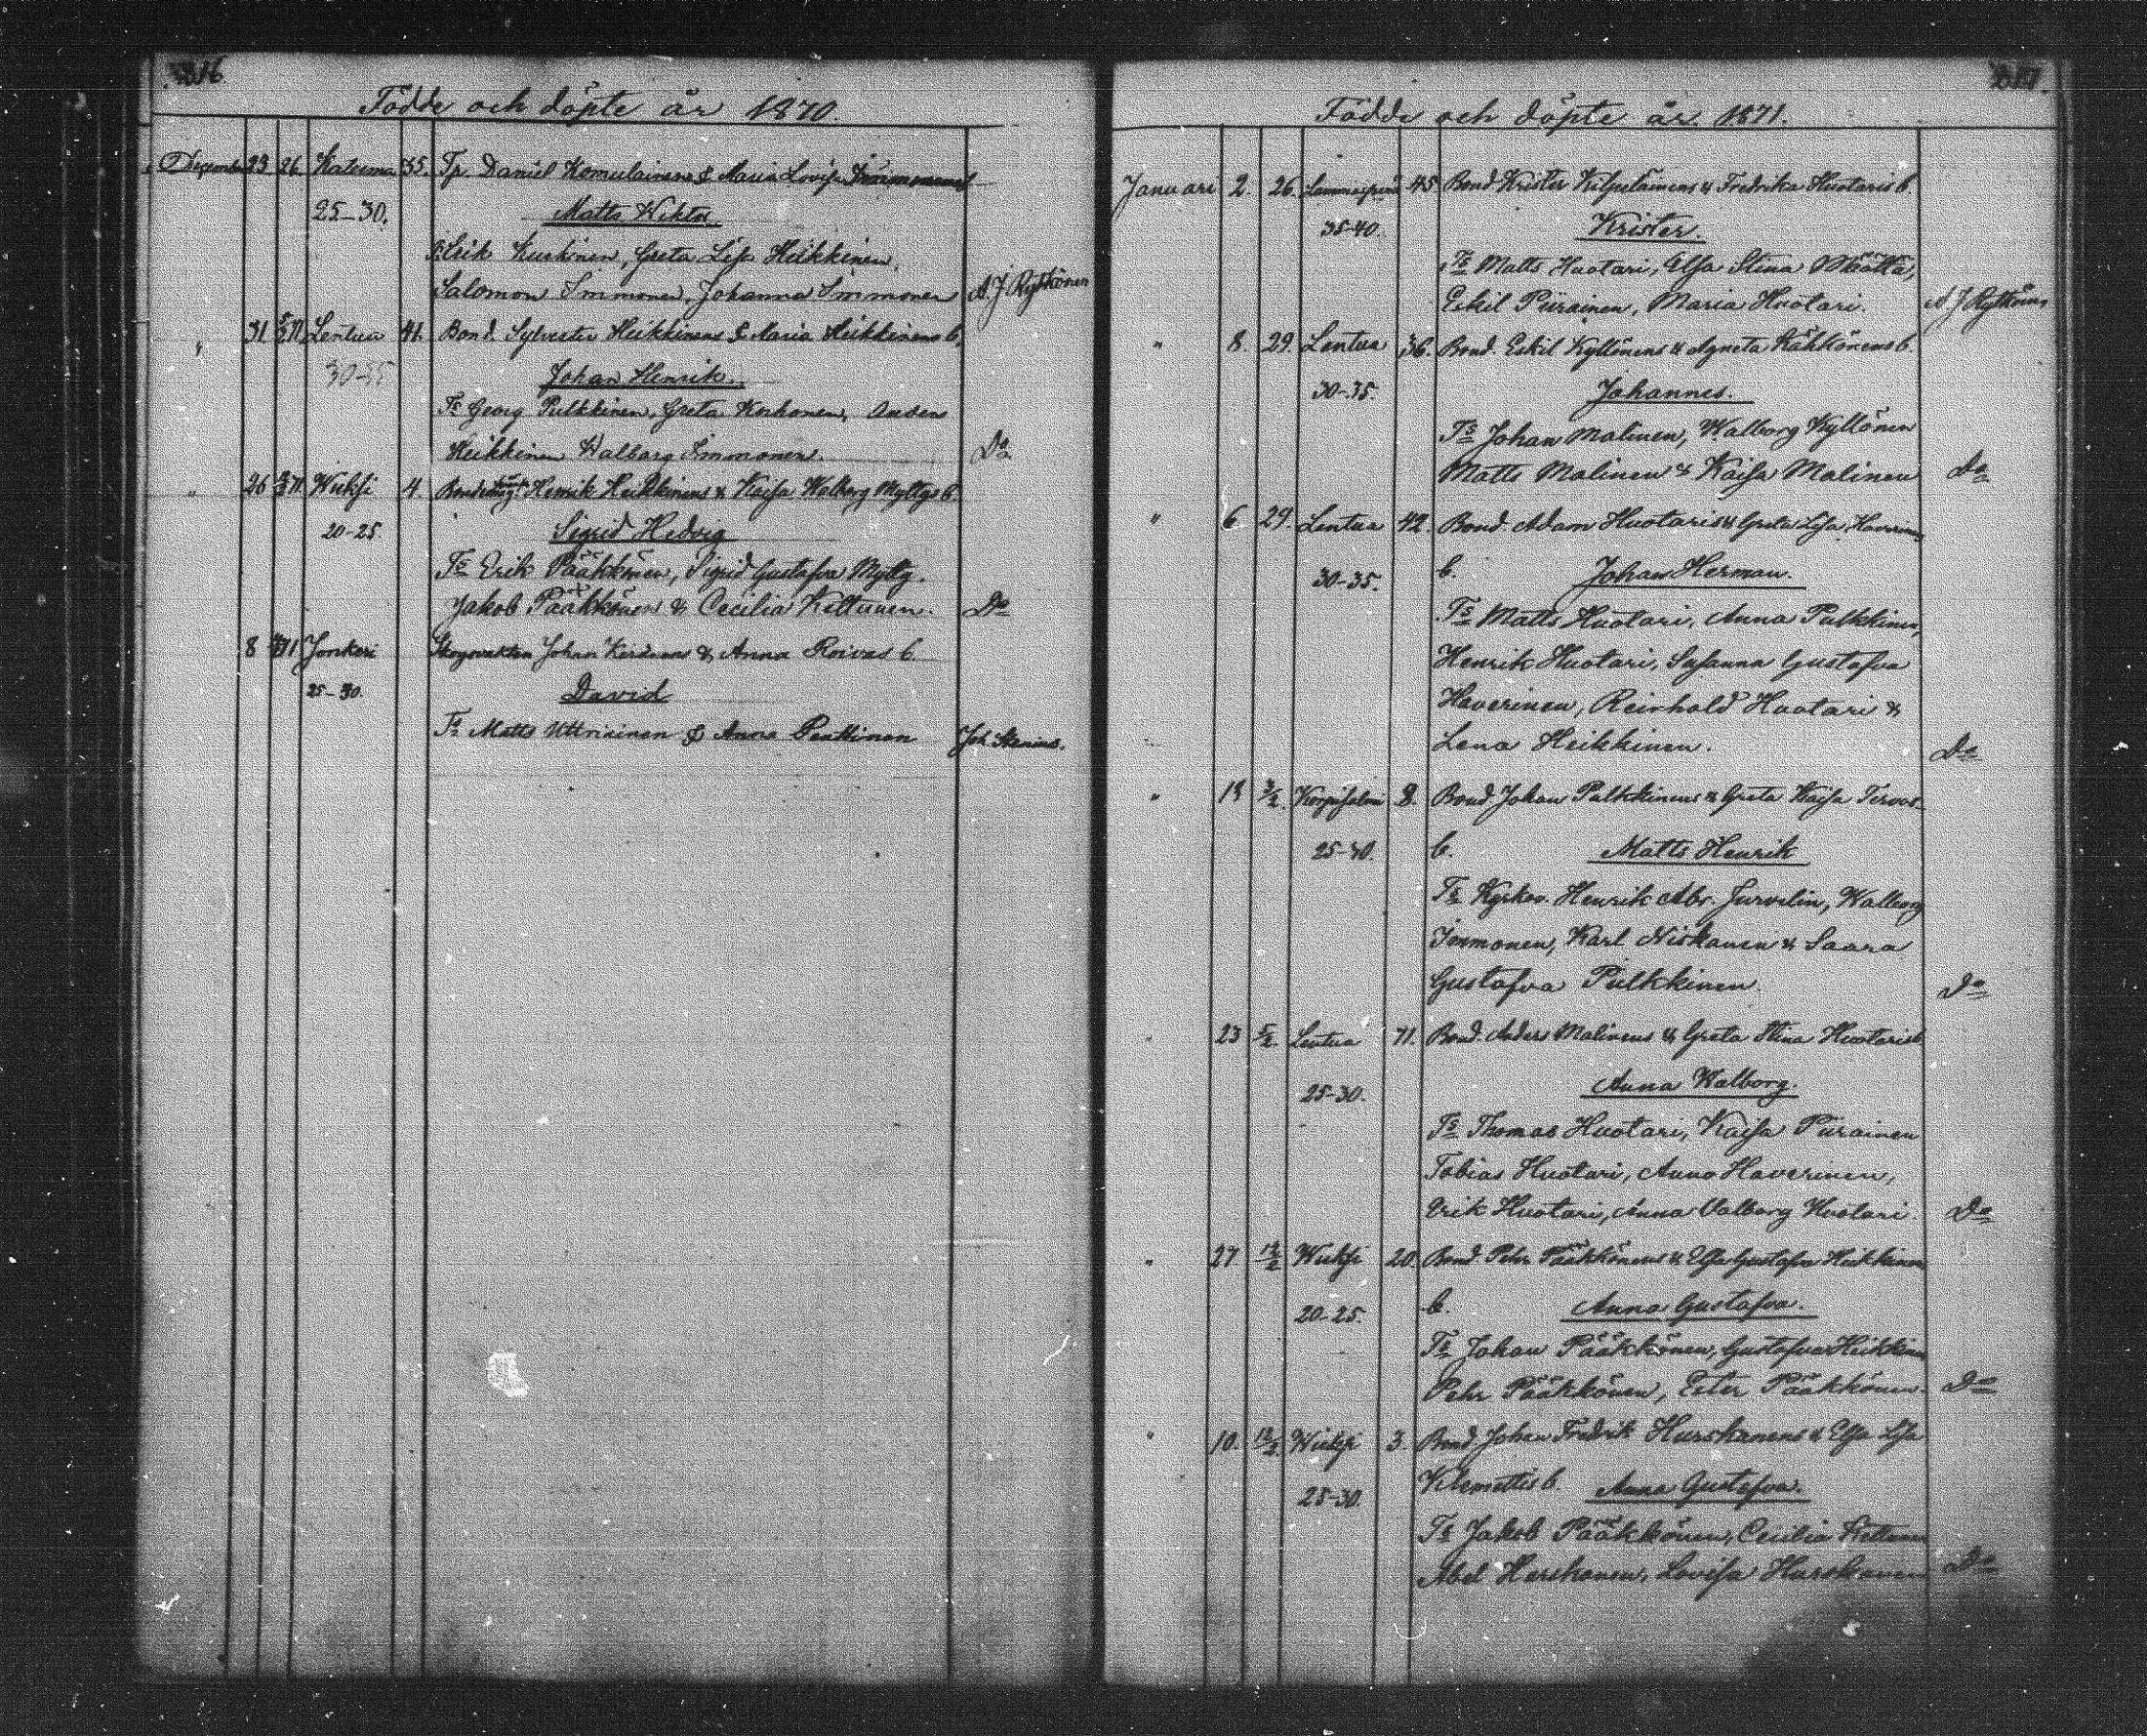 316
Födde och döpte år 1870.
December 23 26 Katerma 35. Tp Daniel Komulainens & Maria Lovisa Immonens b.
25-30. Matts Wiktor.
Ts Erik Kuskinen, Greta Lisa Heikkinen,
Salomon Immonen, Johanna Immonen A. J. Kyttönen
" 31 Lentua 41. Bond. Sylvester Heikkinens & Maria Heikkinens b.
30-35 Johan Henrik.
Ts Georg Pulkkinen, Greta Korhonen, Anders
Heikkinen Walborg Immonen. Do
" 26 Wieksi 4 Henrik Heikkinens & Kaisa Walborg Myllys b.
20-25. Sigrid Hedvig
Ts Erik Pääkkönen, Sigrid Gustafva Mylly.
Jakob Pääkkönen & Cecilia Kettunen. Do
8 Jonkeri Skogsvakten Johan & Anna Roivas b.
25-30. David
Ts Matts Uttriainen & Anna Penttinen Joh. Stenius.
317.
Födde och döpte år 1871.
Januari 2. 26. Lammasperä 45. Bond. Krister Kilpeläinens & Fredrika Huotaris b.
35-40. Krister.
Ts Matts Huotari, Elsa Stina Määttä,
Eskil Piirainen, Maria Huotari. A J Kyttönen
" 8. 29. Lentua 36. Bond. Eskil Kyllönens & Agneta Kähkönens b.
30-35. Johannes.
Ts Johan Malinen, Walborg Kyllönen
Matts Malinen & Kaisa Malinen Do
" 6 29. Lentua 42. Bond. Adam Huotaris & Greta Lisa Haverinens
30-35. b. Johan Herman.
Ts Matts Huotari, Anna Pulkkinen,
Henrik Huotari, Susanna Gustafva
Haverinen, Reinhold Huotari &
Lena Heikkinen. Do
" 3/2. Korpisalmi 8. Bond. Johan Pulkkinens & Greta Kaisa Tervos
25-40. b. Matts Henrik
Ts Kyrkov. Henrik Abr. Jurvelin, Walborg
Immonen, Karl Niskanen & Saara
Gustafva Pulkkinen. Do
" 23 5/2. Lentua 71. Bond. Anders Malinens & Greta Stina Huotaris b.
25-30. Anna Walborg.
Ts Thomas Huotari, Kaisa Piirainen
Tobias Huotari, Anna Haverinen,
Erik Huotari, Anna Valborg Huotari. Do
" 27 12/2 Wieksi 20. Bond. Pehr Pääkkönens & Elsa Gustafva Heikkinens
20-25. b. Anna Gustafva.
Ts Johan Pääkkönen, Gustafva Heikkinen
Pehr Pääkkönen, Ester Pääkkönen. Do
" 10. 12/2. Wieksi 3. Bond. Johan Fredrik Hurskanens & Elsa Lisa
25-30. Klemettis b. Anna Gustafva.
Ts Jakob Pääkkönen, Cecilia Kettunen
Abel Hurskanen, Lovisa Hurskanen Do